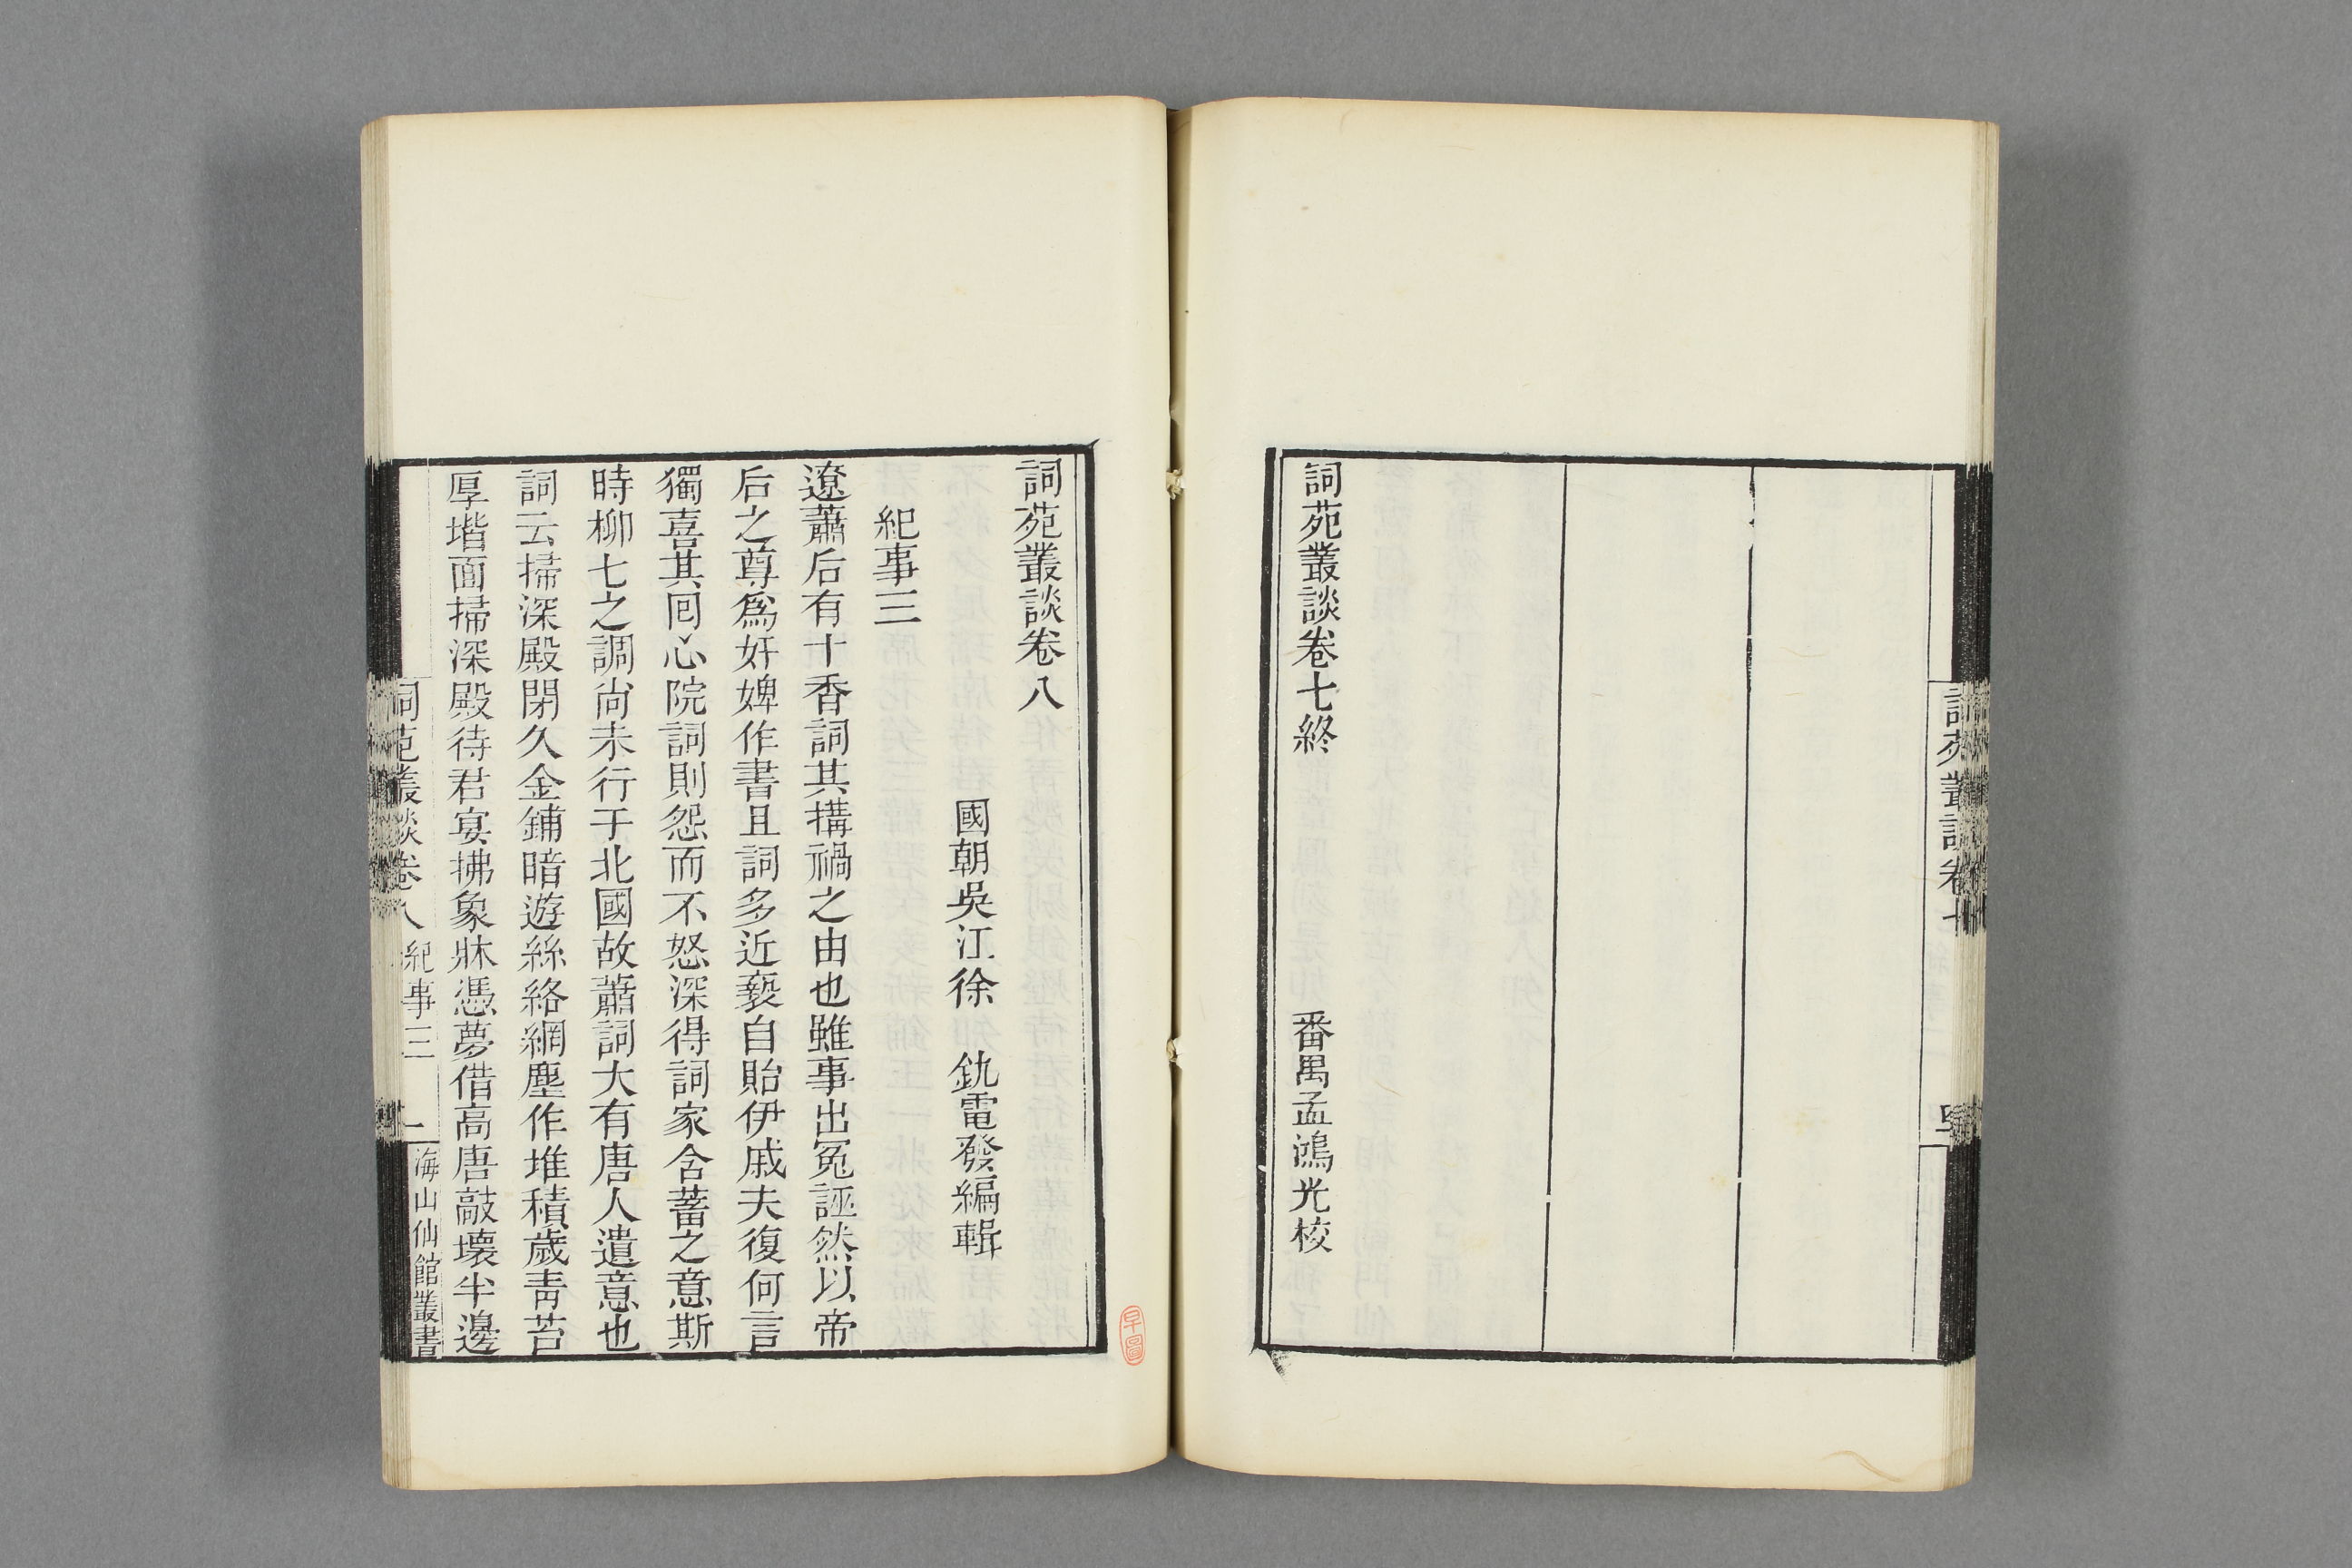 詞苑叢談卷七
詞苑叢談卷七終　番禺孟鴻光校
詞苑叢談卷八
國朝吳江徐　釚電發編輯
紀事三
遼蕭后有十香詞其搆禍之由也雖事出冤誣然以帝
后之尊爲奸婢作書且詞多近褻自貽伊戚夫復何言
獨喜其囘心院詞則怨而不怒深得詞家含蓄之意斯
時柳七之調尙未行于北國故蕭詞大有唐人遺意也
詞云掃深殿閉久金鋪暗遊絲絡網塵作堆積歲靑苔
厚堦面掃深殿待君宴拂象牀憑夢借高唐敲壞半邊
詞苑叢談卷八　紀事三　一　海山仙館叢書
早圖